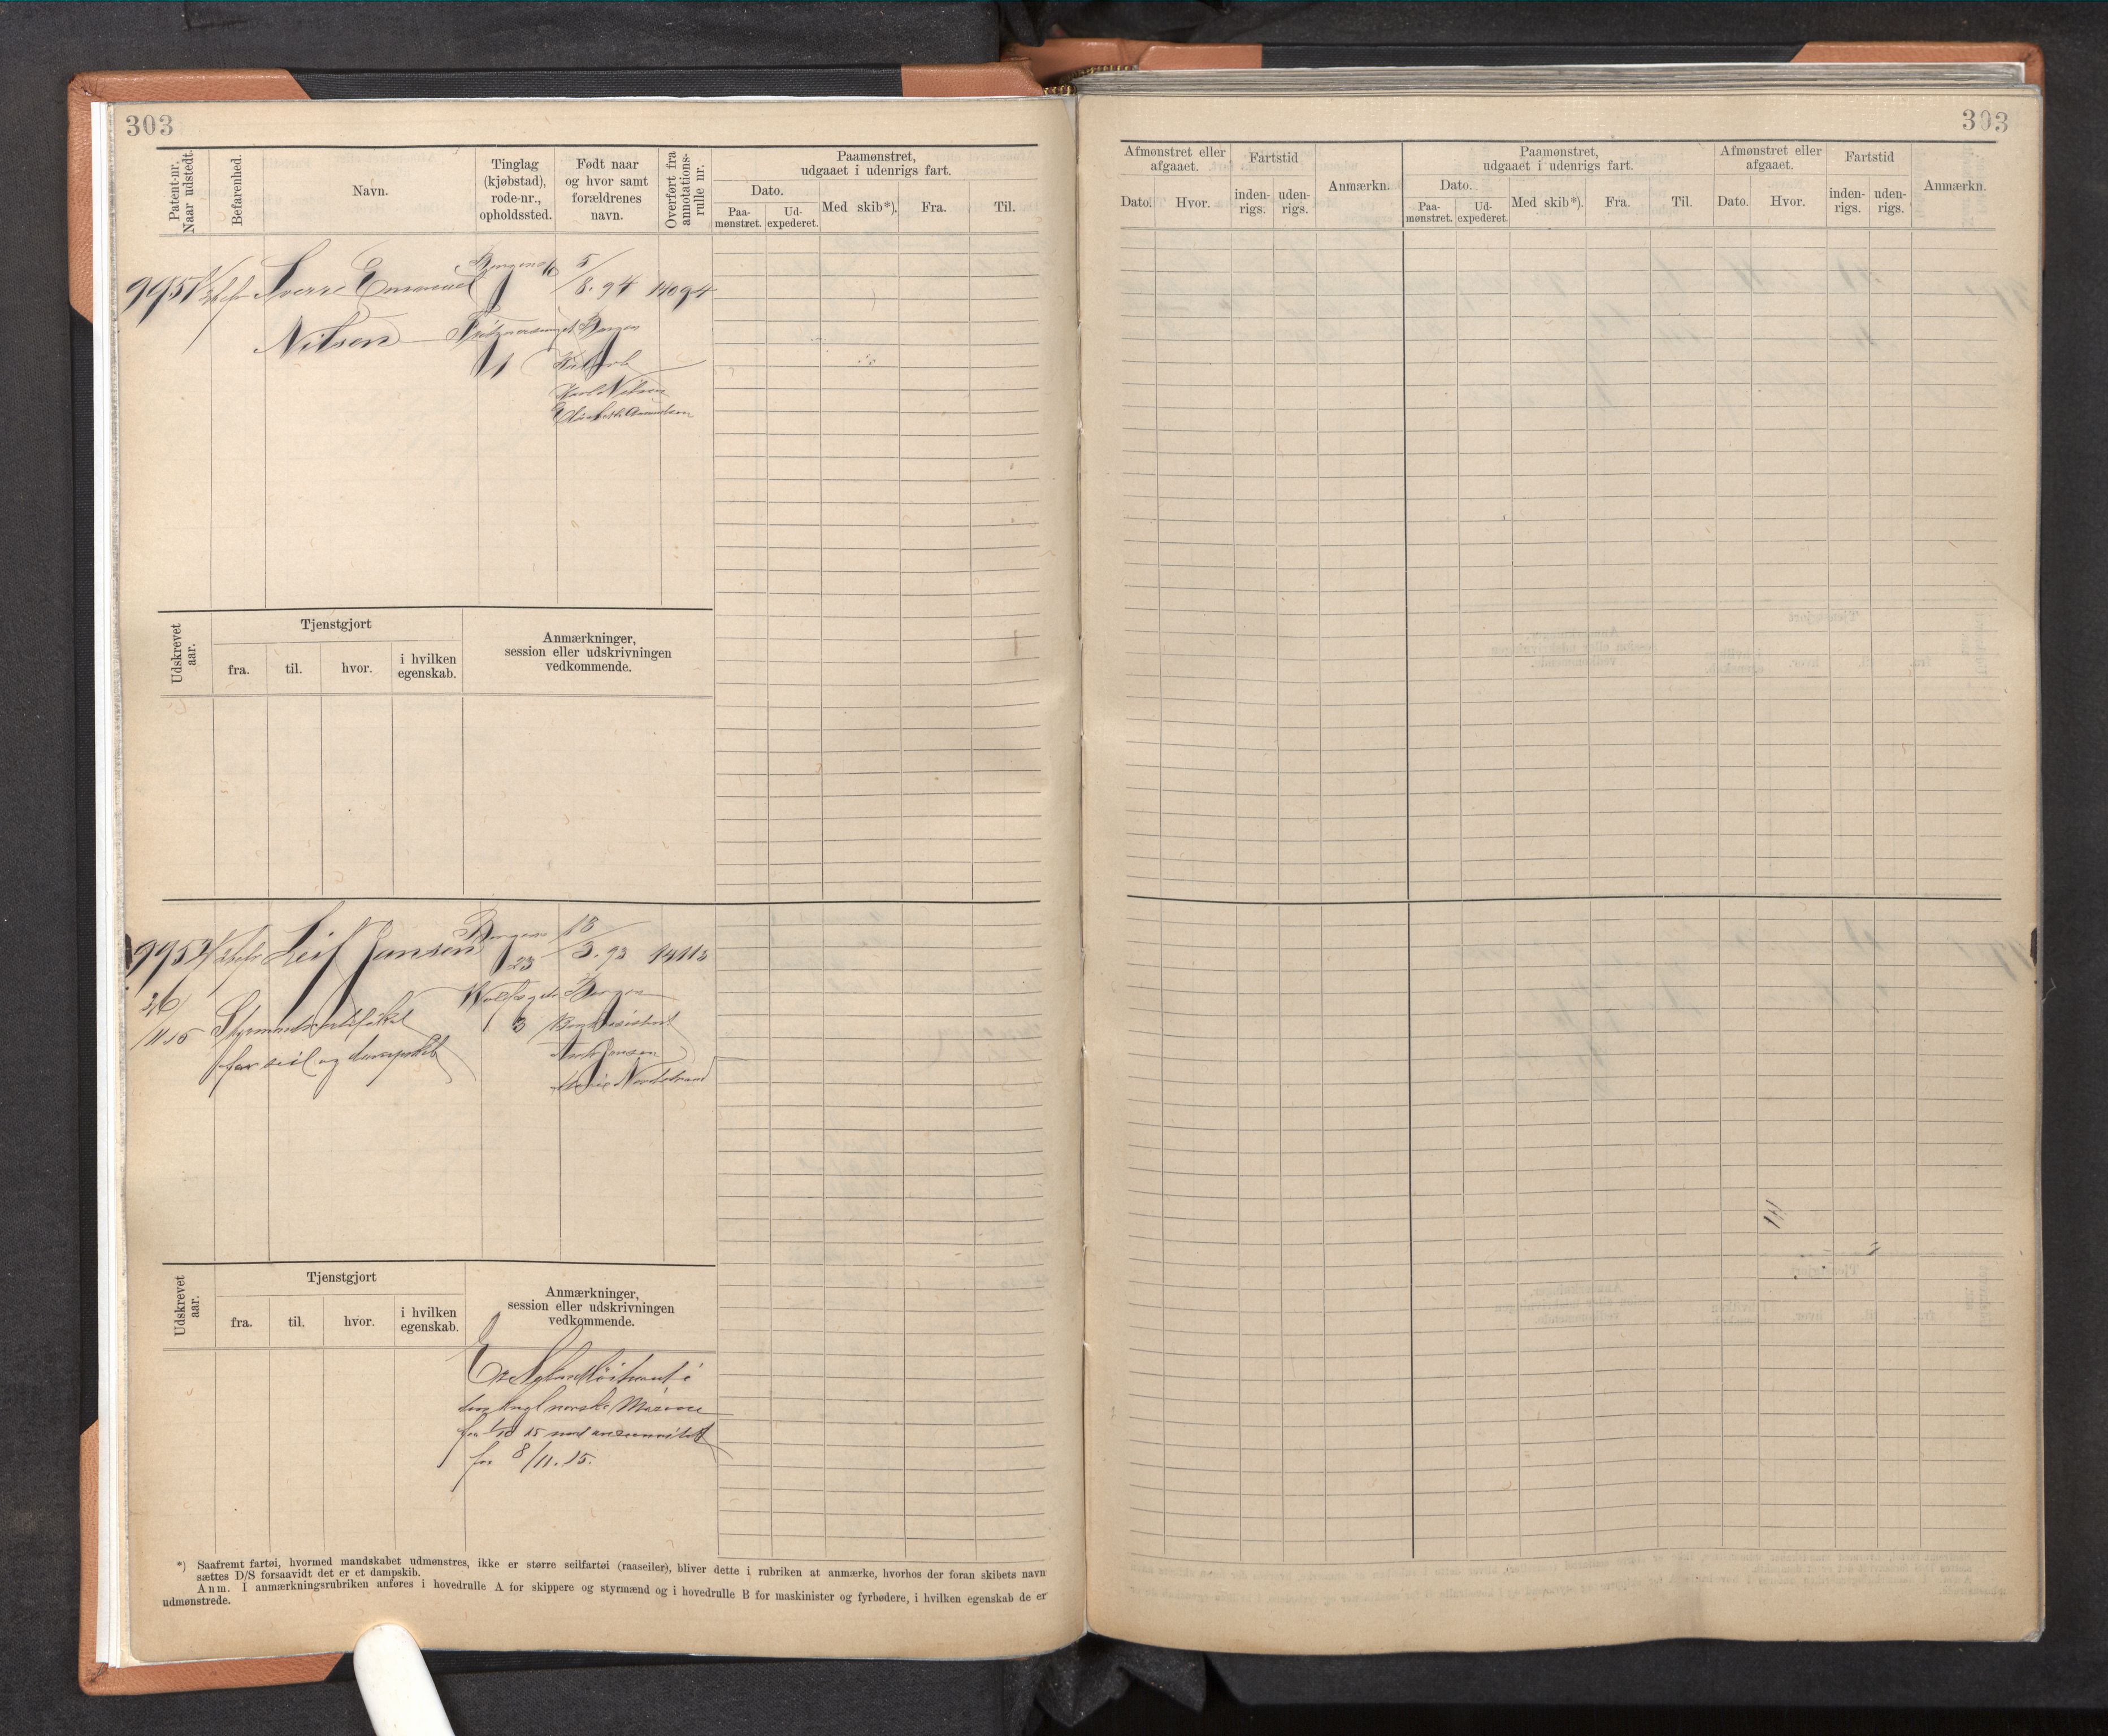 303
Patent-nr.
Naar udstedt.
Befarenhed.
Navn.
Tinglag
(kjøbstad),
rode-nr.,
opholdssted.
Født naar
og hvor samt
forældrenes
navn.
Overført fra
annotations-
rulle nr.
Paamønstret,
udgaaet i udenrigs fart.
Dato.
Paa-
mønstret.
Ud-
expederet.
Med skib*).
Fra.
Til.
9951
Sverre Emanuel
Nilsen
Bergen
5/8. 94
14094
Bergen
Karl Nilsen
Udskrevet
aar.
Tjenstgjort
fra.
til.
hvor.
i hvilken
egenskab.
Anmærkninger,
session eller udskrivningen
vedkommende.
9952
Leif Jansen
Bergen
23
18/3. 93
14113
26/11 15
Styrmandscertifikat
for seil og dampskib
3
Bergen
Nordstrand
Udskrevet
aar.
Tjenstgjort
fra.
til.
hvor.
i hvilken
egenskab.
Anmærkninger,
session eller udskrivningen
vedkommende.
Er i
den kngl norske Marine
fra 1/10 15 med anciennitet
fra 8/11. 15.
*) Saafremt fartøi, hvormed mandskabet udmønstres, ikke er større seilfartøi (raaseiler), bliver dette i rubriken at anmærke, hvorhos der foran skibets navn
sættes D/S forsaavidt det er et dampskib.
Anm. I anmærkningsrubriken anføres i hovedrulle A for skippere og styrmænd og i hovedrulle B for maskinister og fyrbødere, i hvilken egenskab de er
udmønstrede.
303
Afmønstret eller
afgaaet.
Dato.
Hvor.
Fartstid
inden-
rigs.
uden-
rigs.
Anmærkn.
Paamønstret,
udgaaet i udenrigs fart.
Dato.
Paa-
mønstret.
Ud-
expederet.
Med skib*).
Fra.
Til.
Afmønstret eller
afgaaet.
Dato.
Hvor.
Fartstid
inden-
rigs.
uden-
rigs.
Anmærkn.